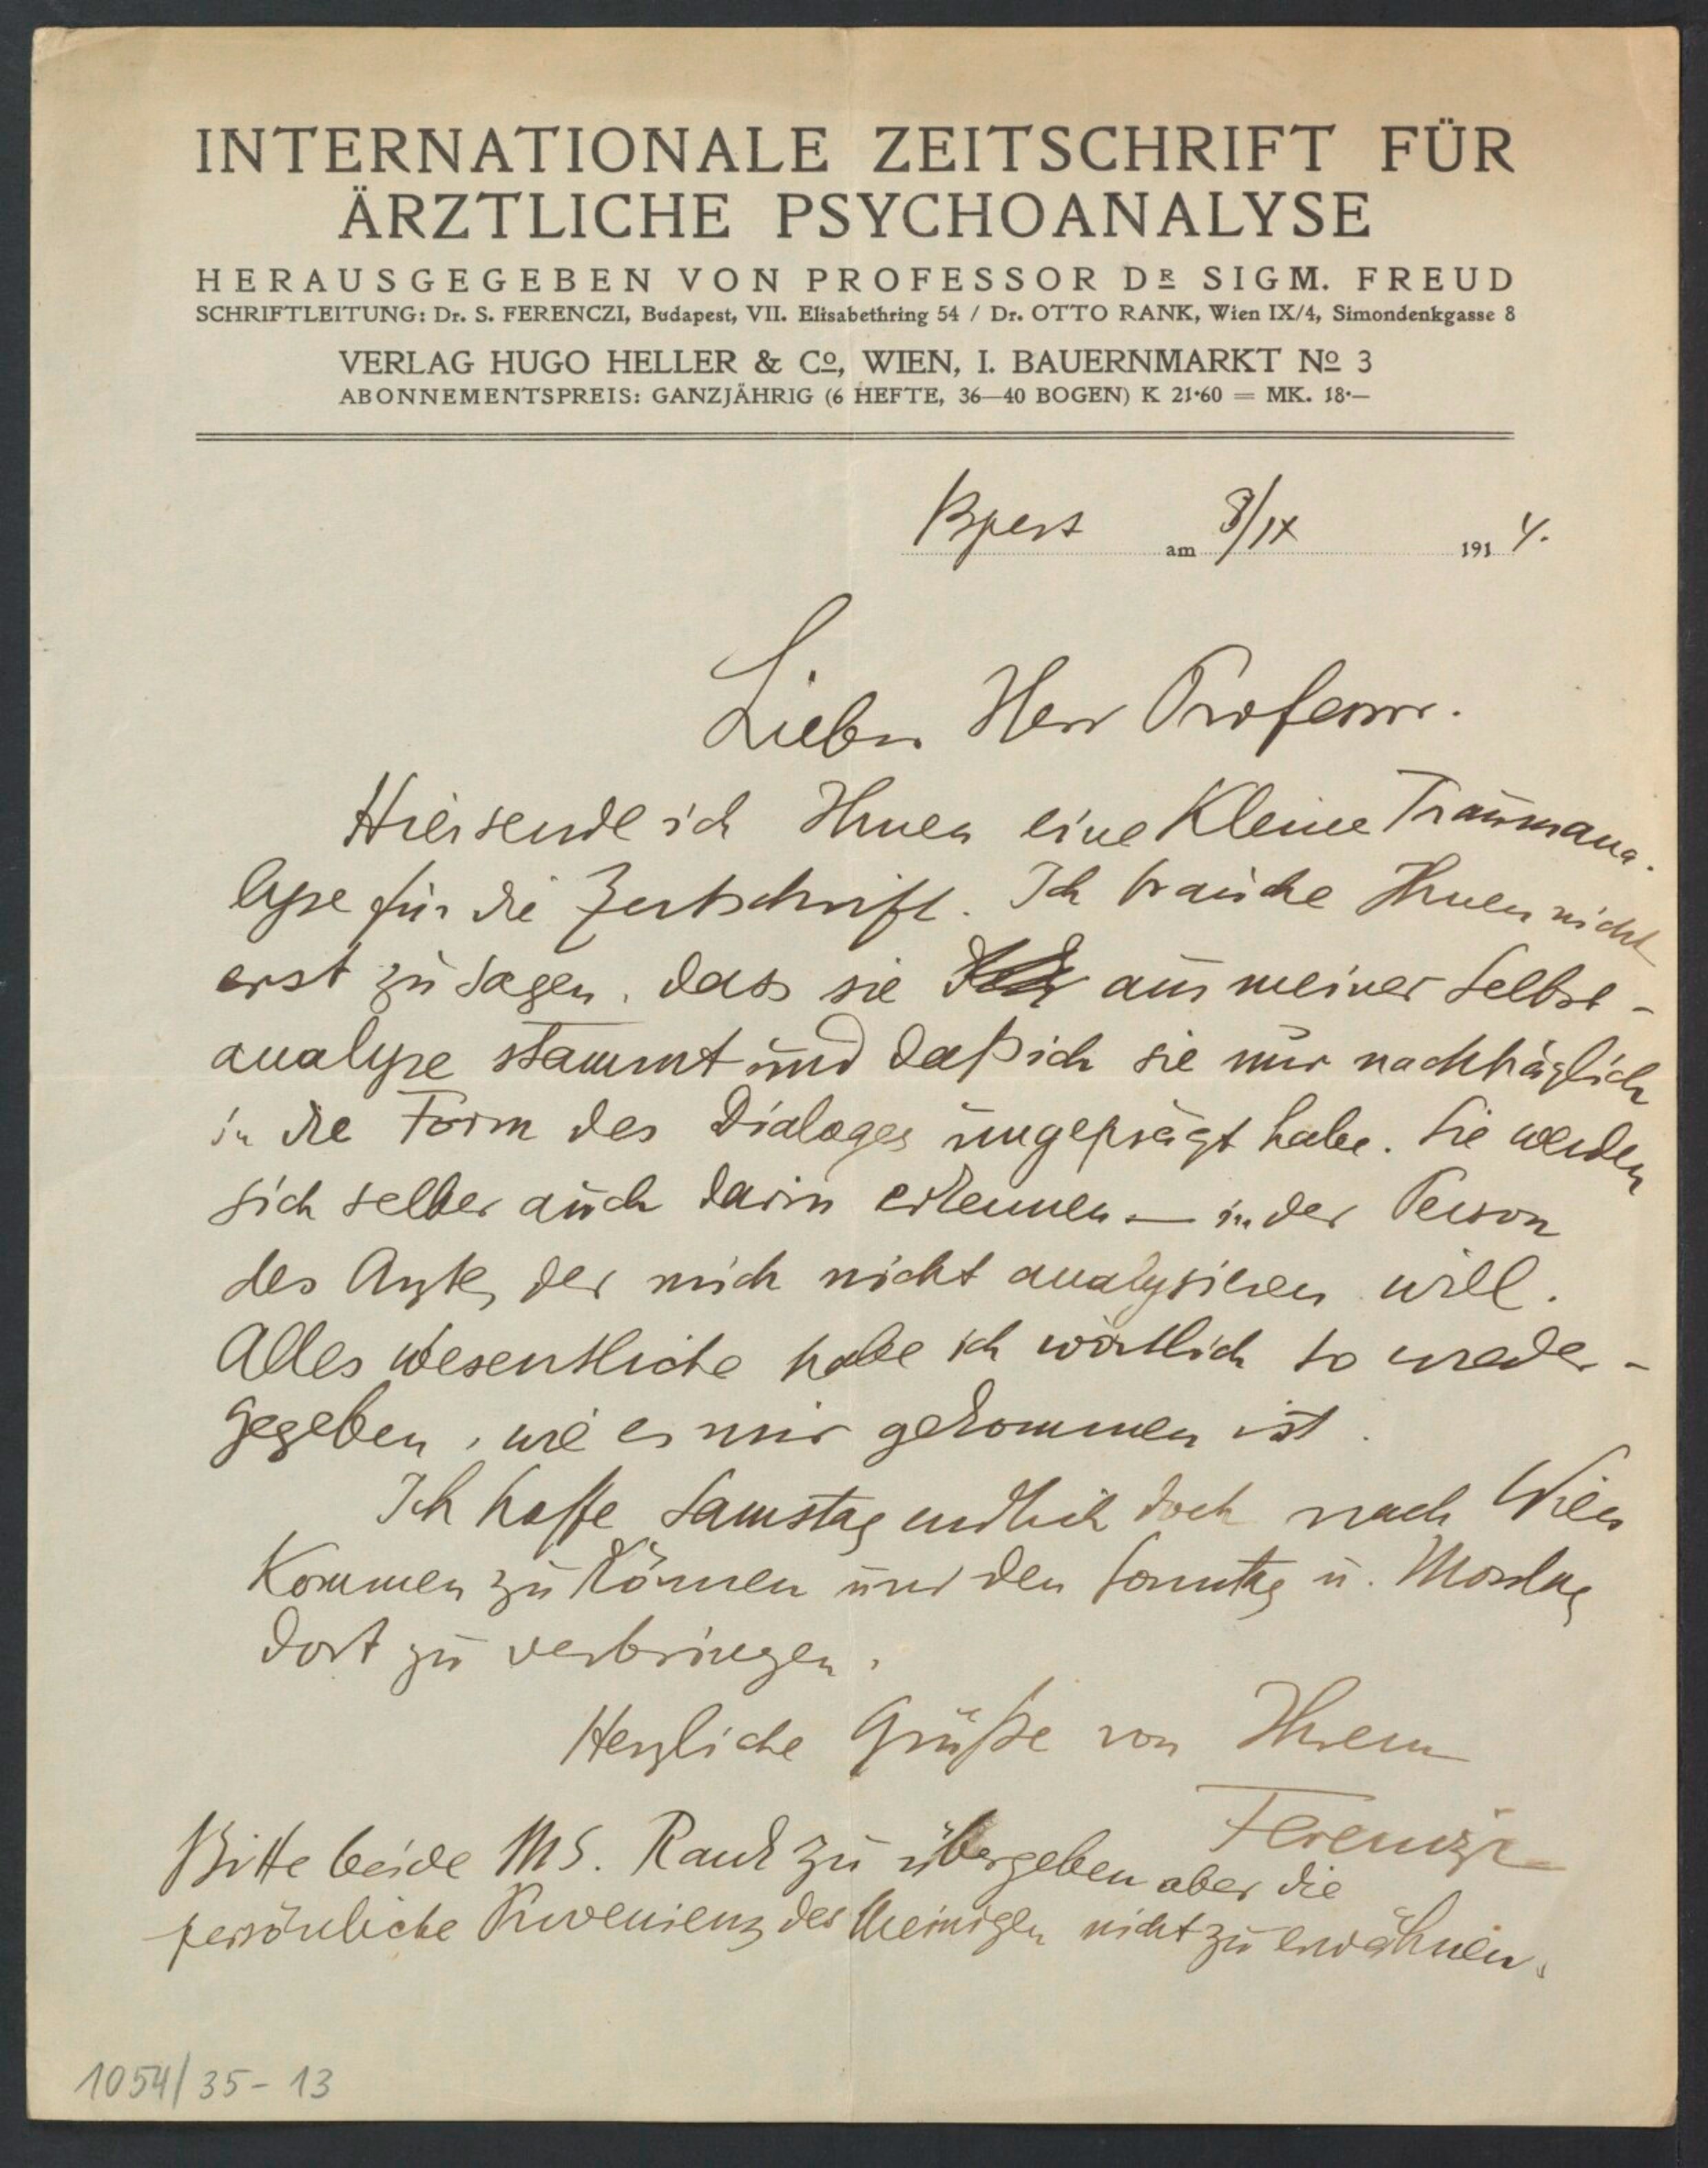 INTERNATIONALE ZEITSCHRIFT FÜR
ÄRZTLICHE PSYCHOANALYSE
HERAUSGEGEBEN VON PROFESSOR DR SIGM. FREUD
SCHRIFTLEITUNG: Dr. S. FERENCZI, Budapest, VII. Elisabethring 54 / Dr. OTTO RANK, Wien IX/4, Simondenkgasse 8
VERLAG HUGO HELLER & Co, WIEN, I. BAUERNMARKT No 3
ABONNEMENTSPREIS: GANZJÄHRIG (6 HEFTE, 36—40 BOGEN) K 21·60 = MK. 18·—
Bpest am 8/IX 1914.
Lieber Herr Professor.
Hier sende ich Ihnen eine kleine Traumana-
lyse für die Zeitschrift. Ich brauche Ihnen nicht
erst zu sagen, dass sie aus meiner Selbst-
analyse stammt und daß ich sie nur nachträglich
in die Form des Dialoges umgeprägt habe. Sie werden
sich selber auch darin erkennen — in der Person
des Arztes, der mich nicht analysieren will.
Alles wesentliche habe ich wörtlich so wieder-
gegeben, wie es mir gekommen ist.
Ich hoffe Samstag endlich doch nach Wien
kommen zu können und den Sonntag u. Montag
dort zu verbringen.
Herzliche Grüße von Ihrem
Ferenczi
Bitte beide MS. Rank zu übergeben aber die
persönliche Provenienz des Meinigen nicht zu erwähnen.
1054/35-13